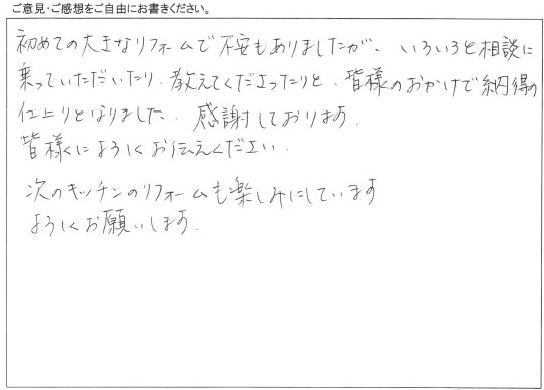 ご意見・ご感想をご自由にお書きください。
初めての大きなリフォームで不安もありましたが、いろいろと相談に
乗っていただいたり、教えてくださったりと、皆様のおかげで納得の
仕上りとなりました。感謝しております。
皆様によろしくお伝えください。
次のキッチンのリフォームも楽しみにしています
よろしくお願いします。